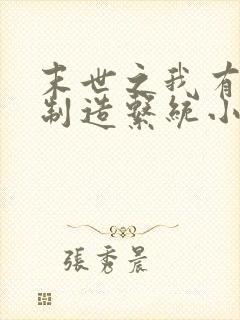 末世之我有
制造繫統小
張秀晨